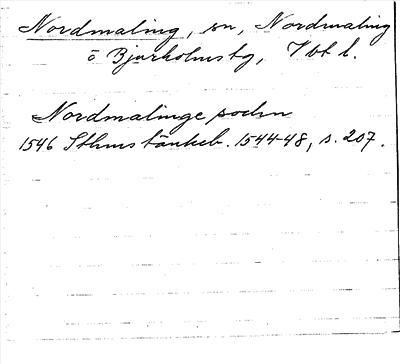 Nordmaling, sn, Nordmaling
o Bjurholms tg, Vbt l.
Nordmalinge sochn
1546 Sthms tänkeb. 1544-48, s. 207.